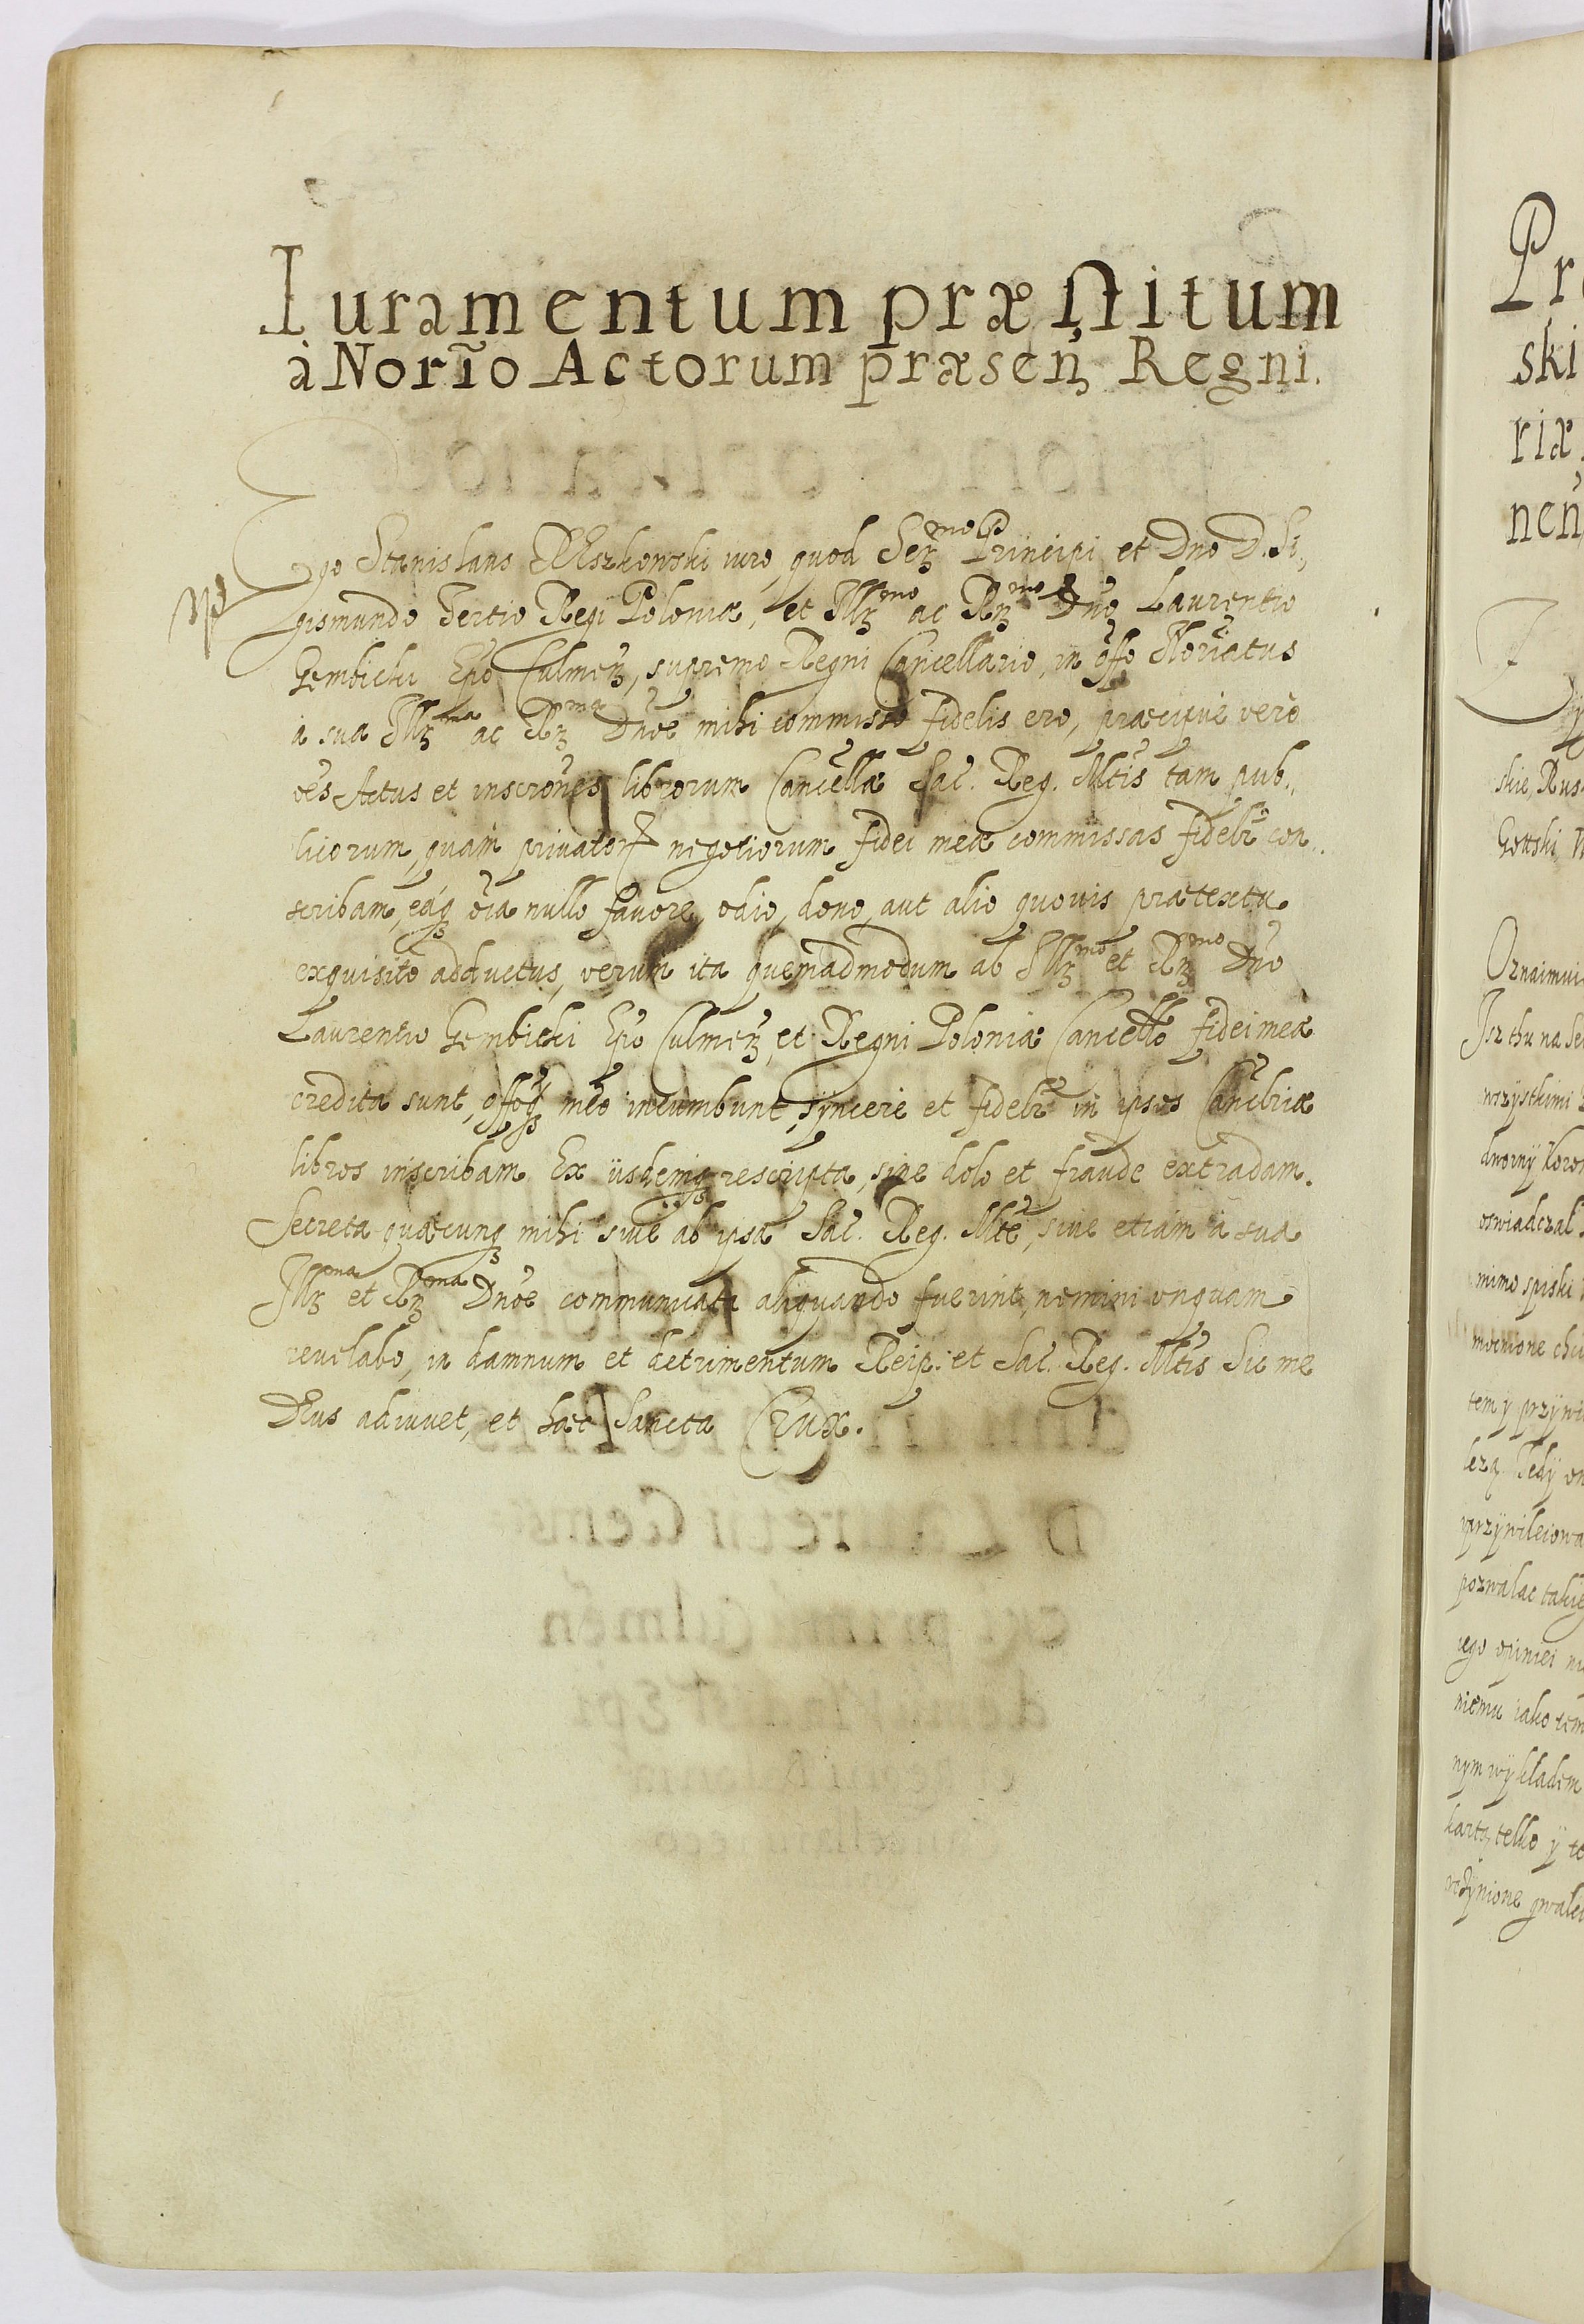 Iuramentum præstitum
à Norĩo Actorum præsenꝫ Regni.
Ego Stanislaus DEszkowski iuro, quod Serꝫmo Principi et Dno D. Si,,
gismundo Tertio Regi Poloniæ, et Illꝫmo ac Rꝫmo Dnõ Laurentio
Gembicki Epõ Culmenꝫ, supremo Regni Cancellario, in offõ Norĩatus
a sua Illꝫma ac Rꝫma Dnõe mihi commisso fidelis ero, præcipuè verò
oẽs Actus et inscrõnes librorum Cancellæ Sac. Reg. Mtis tam pub,,
licorum, quàm priuatorꝝ negotiorum fidei meæ commissas fidelr̃ con,,
scribam, eáqꝫ oĩa nullo fauore, odio, dono, aut alio quouis prætextu
exquisito adductus, verùm ita quemadmodum ab Illꝫmo et Rꝫmo Dnõ
Laurentio Gembicki Epõ Culmenꝫ, et Regni Poloniæ Cancellõ fidei meæ
credita sunt, offõqꝫ meo incumbunt, syncerè et fidelr̃ in ipsos Cancl̃riæ
libros inscribam. Ex iisdemqꝫ rescripta, sine dolo et fraude extradam.
Secreta quæcunqꝫ mihi siue ab ipsa Sac. Reg. Mtẽ, siue etiam à sua
Illꝫma et Rꝫma Dnõe communicata aliquando fuerint, nemini vnquam
reuelabo, in damnum et detrimentum Reip: et Sac. Reg. Mtis Sic me
DEus adiuuet, et hæc Sancta Crux.
Pr
ski
riæ
nen
skie, Rus
Gotski, W
Oznaimui
Isz thu na Se
wszystkimi
dworny Koro
oswiadczal
mimo spiski
mocnione
tem y przywi
leza. Tedy
przywileiowa
pozwalac takie
iego opiniei
niemu iako tem
nym wykladem
karta, telko y to